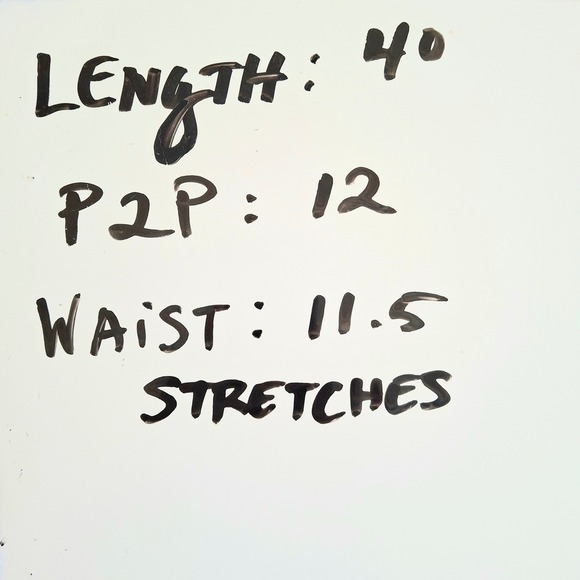 LENgTH: 40
P2P: 12
WAiST: 11.5
STRETCHES